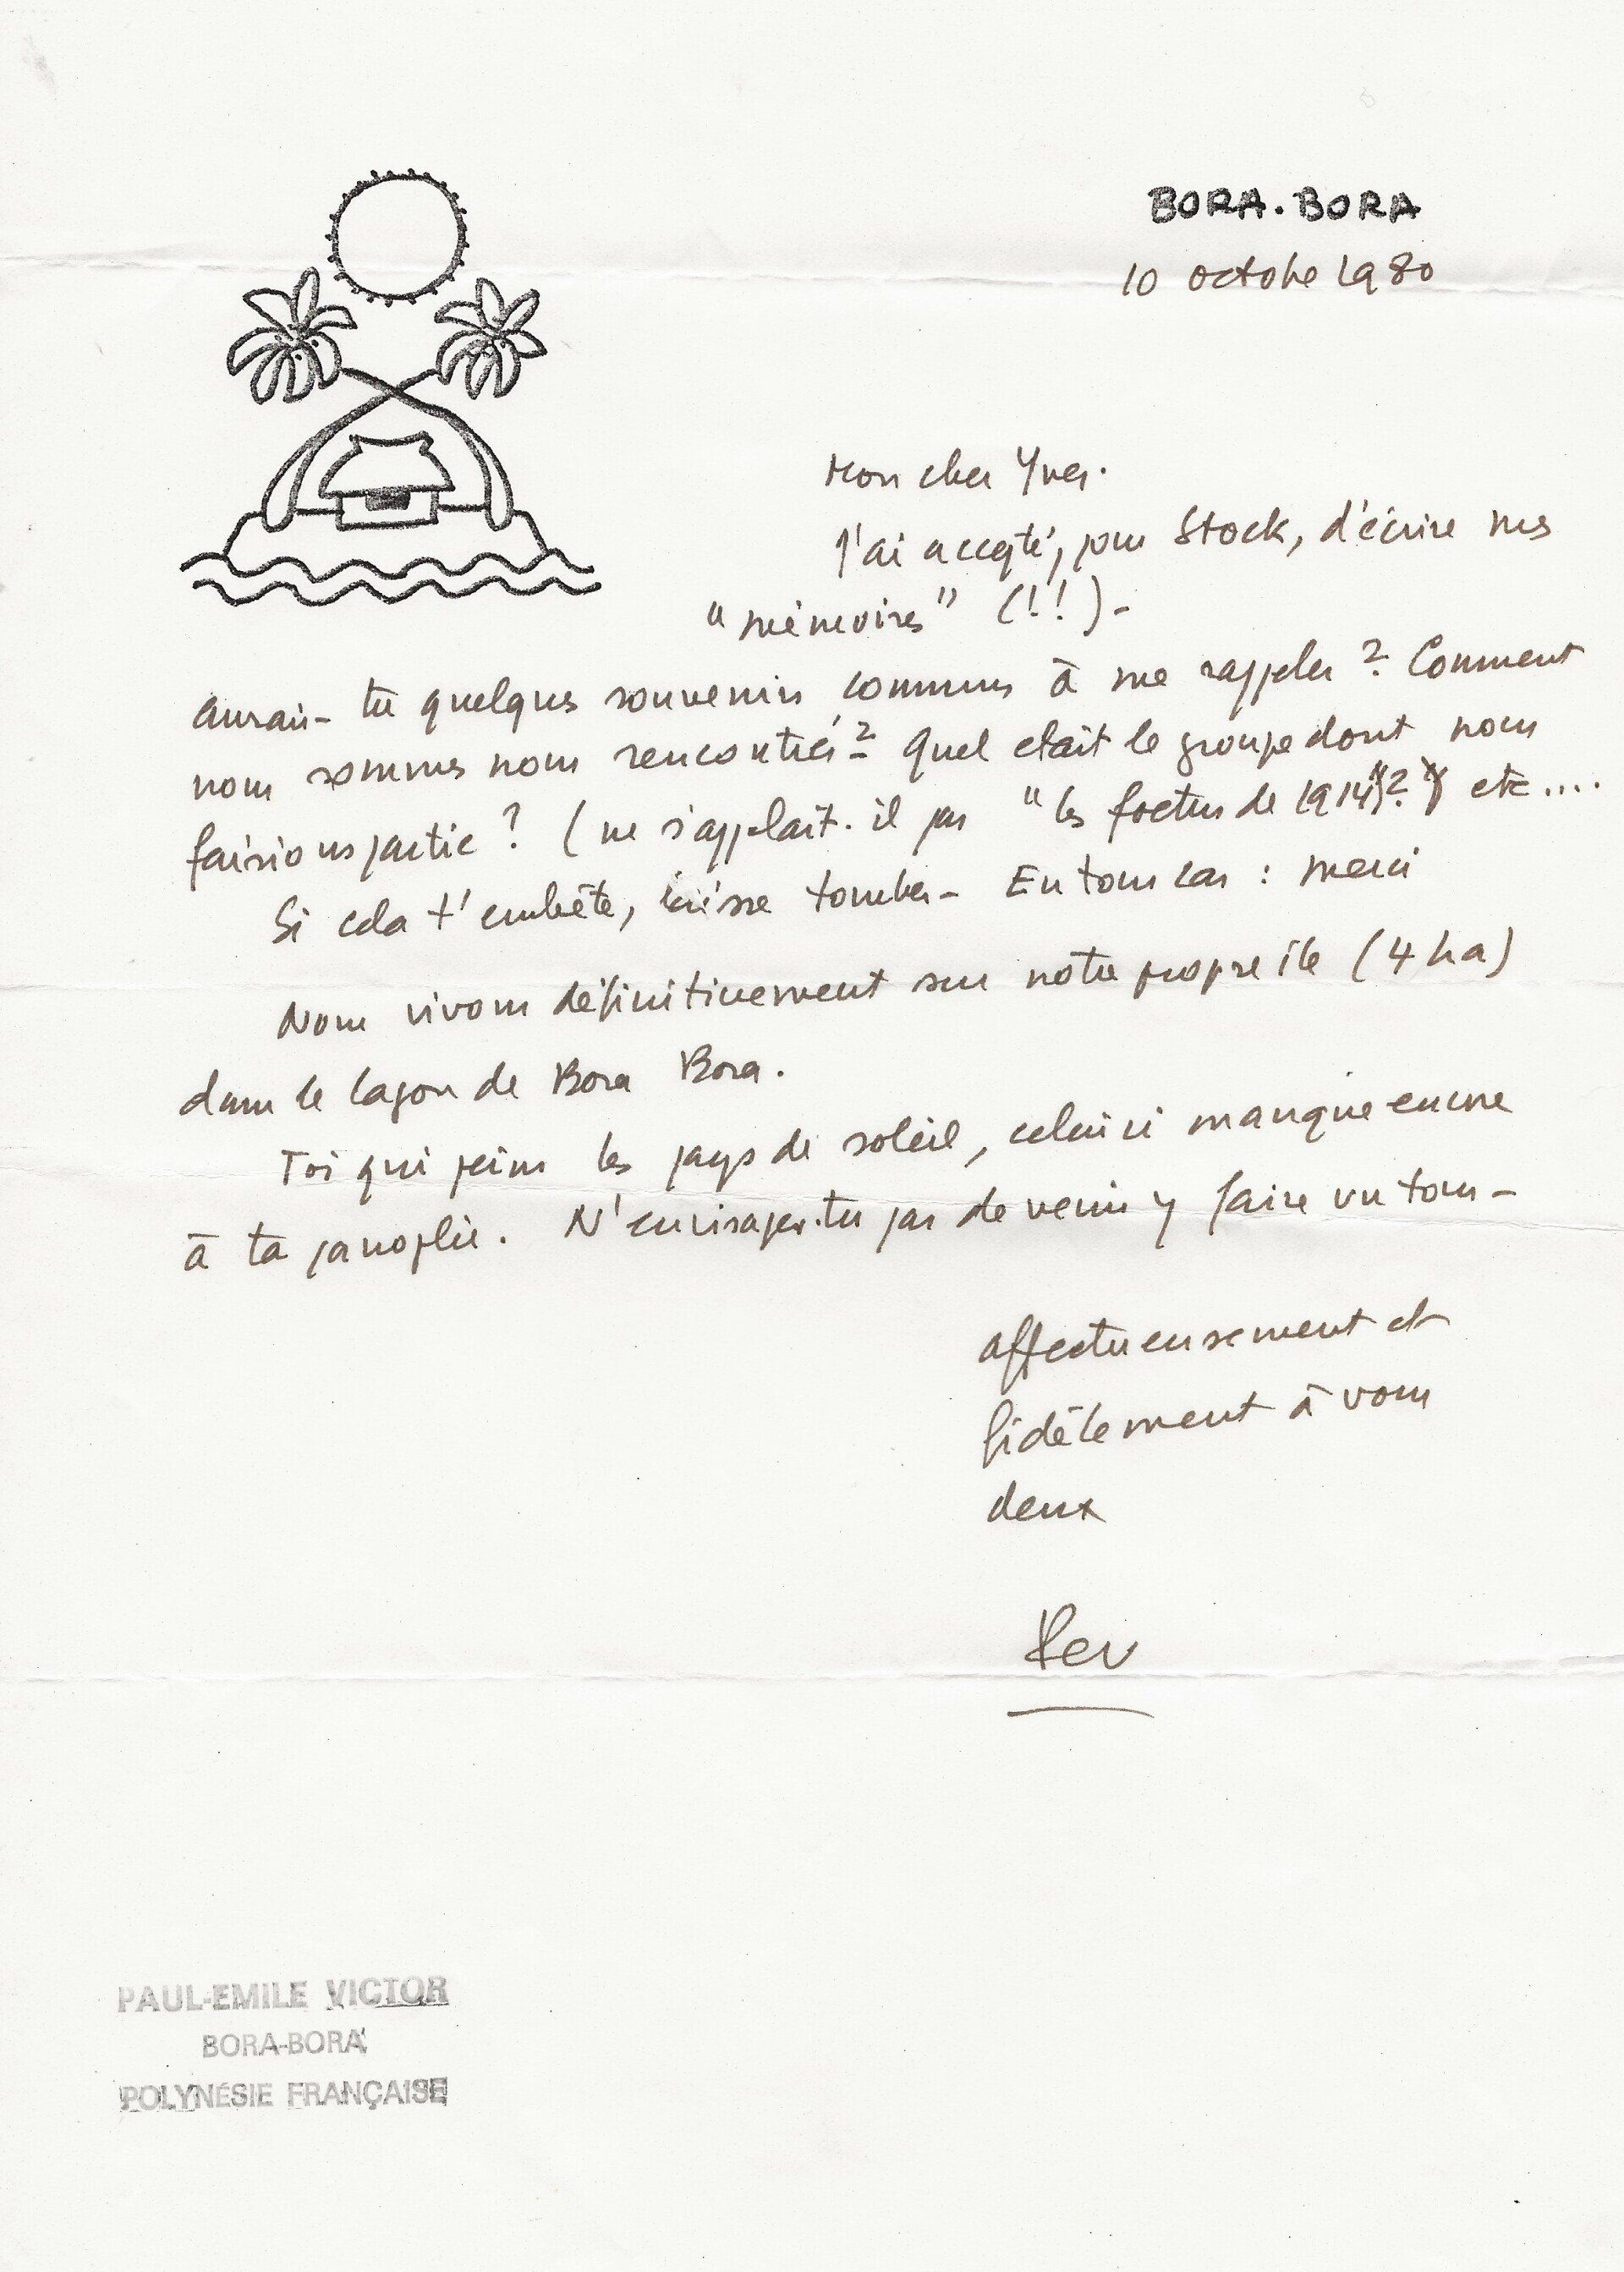 BORA.BORA
10 octobre 1980
Mon cher Yves.
J'ai accepté, pour Stock, d'écrire mes
"mémoires" (!!)-
Aurais-tu quelques souvenirs communs à me rappeler ? Comment
nous sommes nous rencontrés ? Quel etait le groupe dont nous
faisions partie ? (ne s'appelait-il pas "les foetus de 1914"?) etc....
Si cela t'embête, laisse tomber - En tous cas : merci
Nous vivons définitivement sur notre propre île (4 ha)
dans le lagon de Bora Bora.
Toi qui peins les pays de soleil, celui ci manque encore
à ta panoplie. N'envisages-tu pas de venir y faire un tour -
Affectueusement et
fidèlement à vous
deux
Pev
PAUL-EMILE VICTOR
BORA-BORA
POLYNÉSIE FRANÇAISE